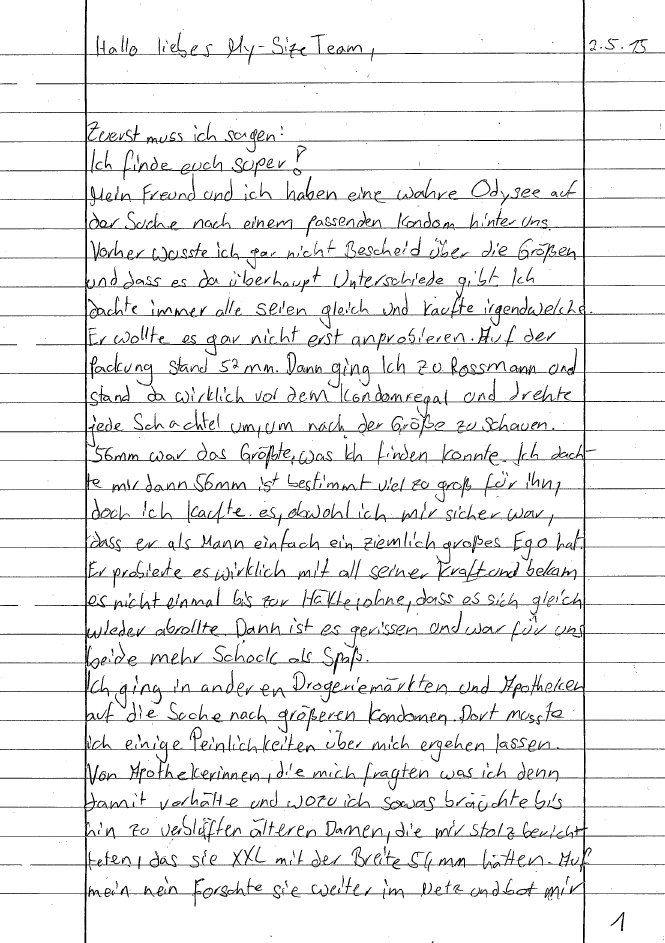 Hallo liebes My-Size Team,
2.5.15
Zuerst muss ich sagen:
Ich finde euch super!
Mein Freund und ich haben eine wahre Odysee auf
der Suche nach einem passenden Kondom hinter uns.
Vorher wusste ich gar nicht Bescheid über die Größen
und dass es da überhaupt Unterschiede gibt. Ich
dachte immer alle seien gleich und kaufte irgendwelche.
Er wollte es gar nicht erst anprobieren. Auf der
Packung stand 52mm. Dann ging Ich zu Rossmann und
stand da wirklich vor dem Kondomregal und drehte
jede Schachtel um, um nach der Größe zu Schauen.
56mm war das Größte, was Ich finden konnte. Ich dach-
te mir dann 56mm ist bestimmt viel zu groß für ihn,
doch ich kaufte es, obwohl ich mir sicher war,
dass er als Mann einfach ein ziemlich großes Ego hat.
Er probierte es wirklich mit all seiner Kraft und bekam
es nicht einmal bis zur Hälfte, ohne, dass es sich gleich
wieder abrollte. Dann ist es gerissen und war für uns
beide mehr Schock als Spaß.
Ich ging in anderen Drogeriemärkten und Apotheken
auf die Suche nach größeren Kondomen. Dort musste
ich einige Peinlichkeiten über mich ergehen lassen.
Von Apothekerinnen, die mich fragten was ich denn
damit vorhätte und wozu ich sowas bräuchte bis
hin zu verblüfften älteren Damen, die mir stolz berich-
teten, das sie XXL mit der Breite 54mm hätten. Auf
mein nein Forschte sie weiter im Netz und bot mir
1